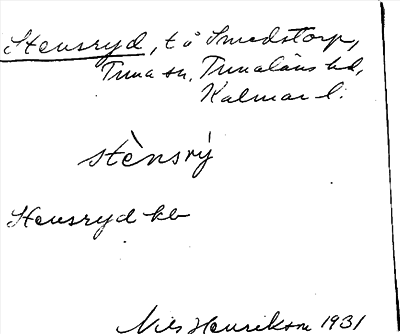 Stensryd, t å Smedstorp,
Tuna sn, Tunaläns hd,
Kalmar l.
stènsrý
Stensryd kb
Nils Henrikson 1931